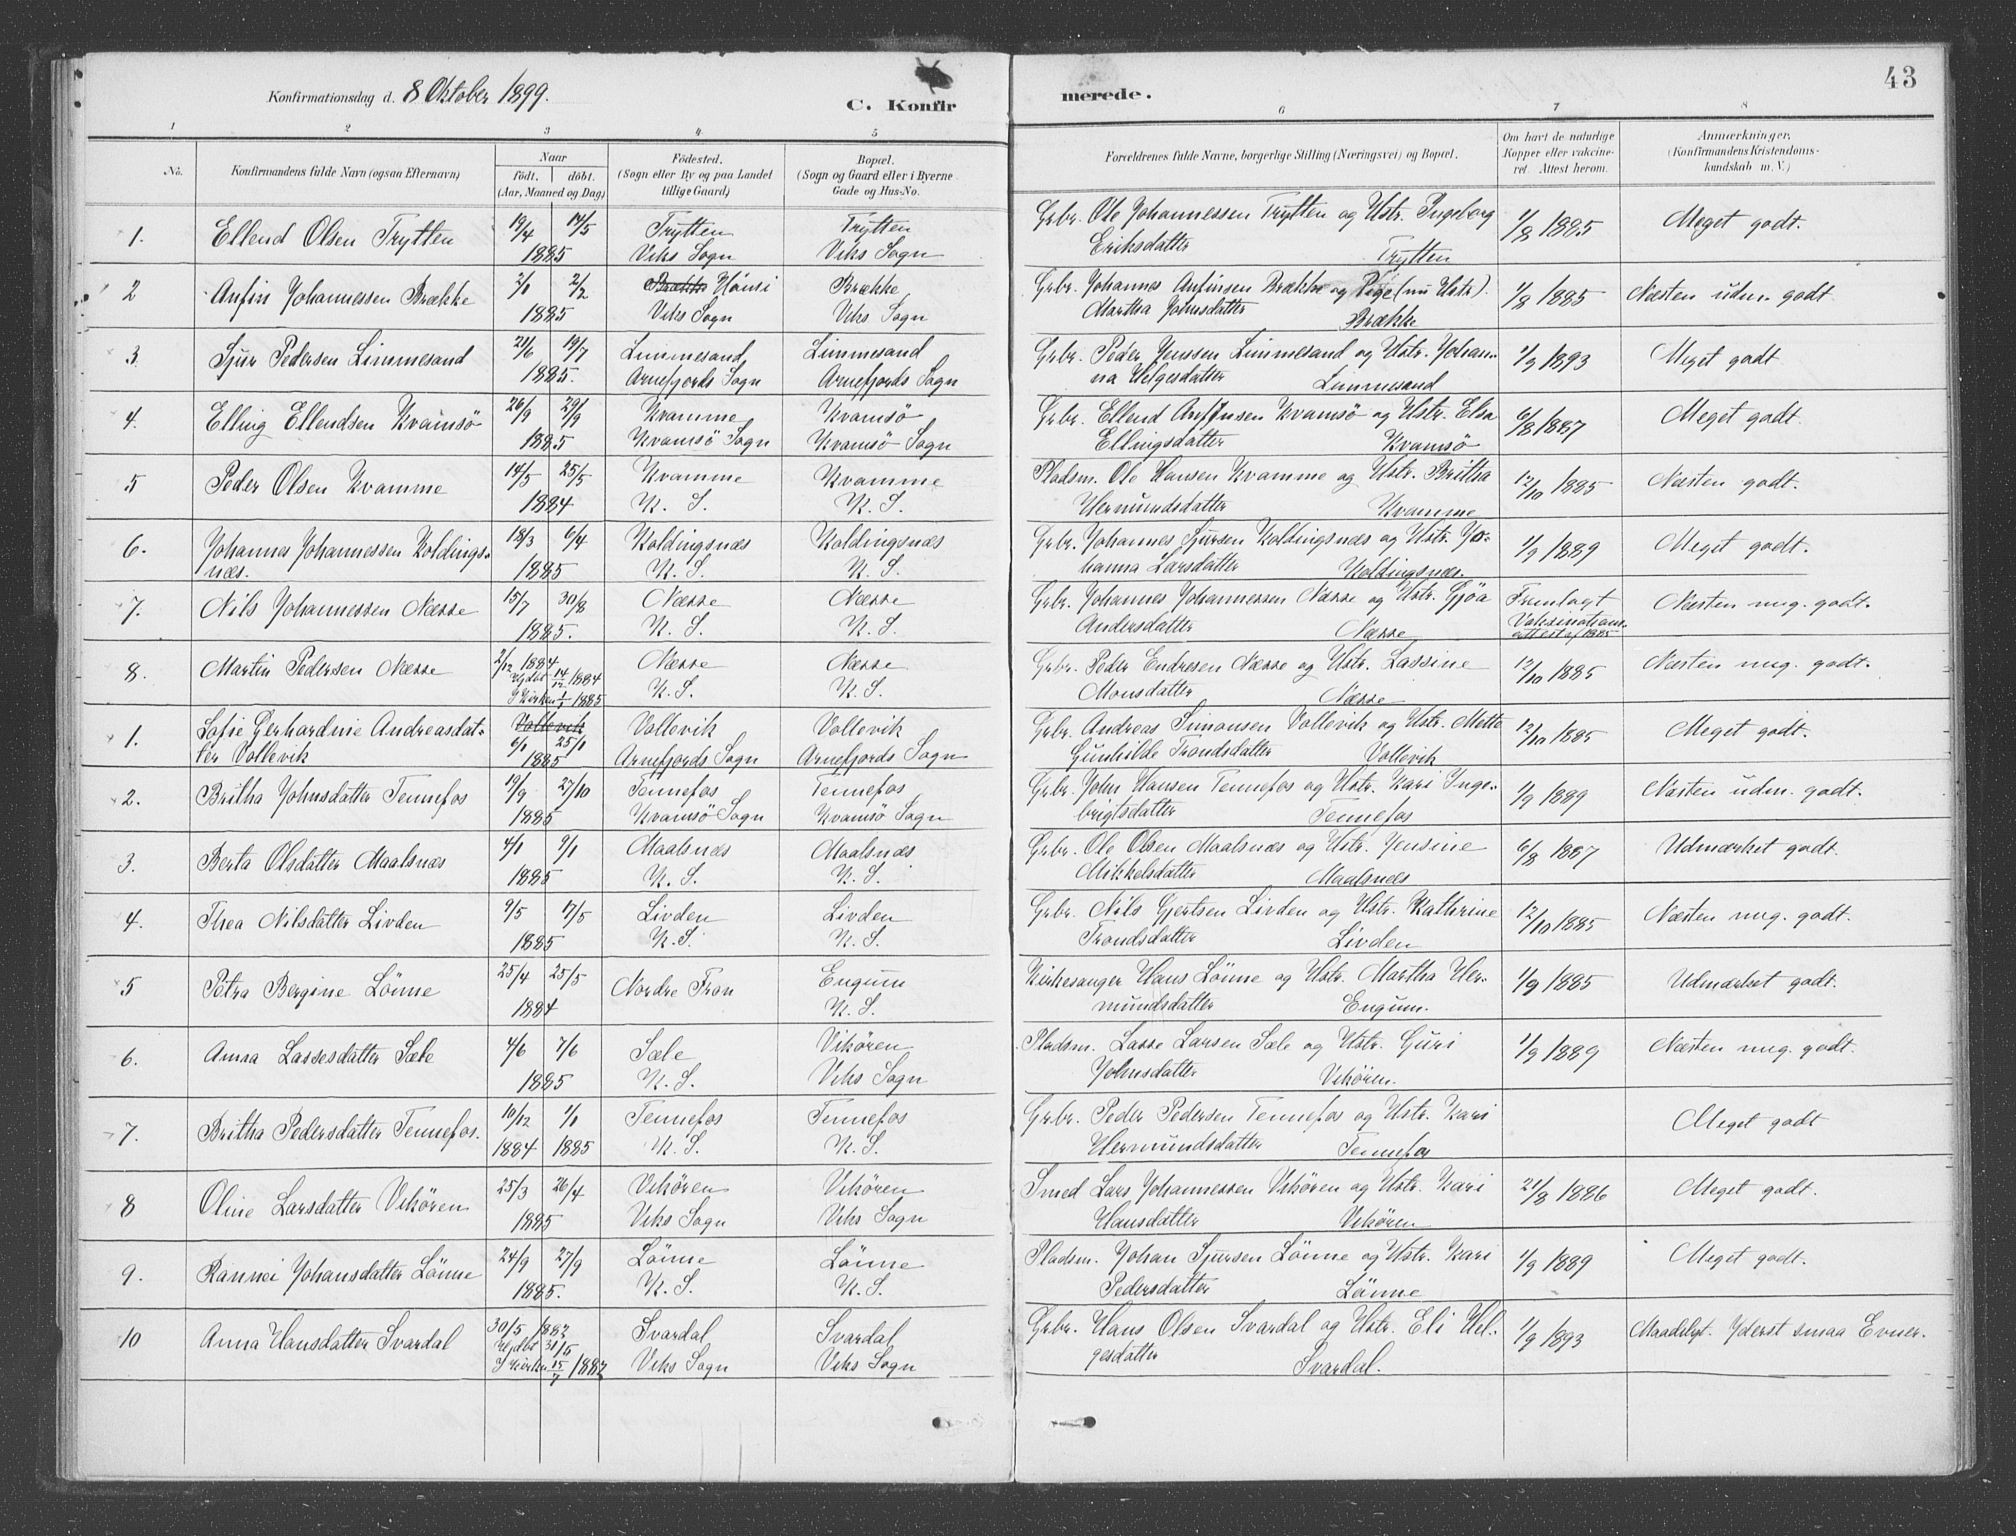 43
Konfirmationsdag d. 8 Oktober 1899.
C. Konfir
merede.
1 2 3 4 5 6 7 8
No.
Konfirmandens fulde Navn (ogsaa Efternavn)
Naar
født. døbt.
(Aar, Maaned og Dag)
Fødested.
(Sogn eller By og paa Landet
tillige Gaard)
Bopæl.
(Sogn og Gaard eller i Byerne
Gade og Hus-No.
Forældrenes fulde Navne, borgerlige Stilling (Næringsvei) og Bopæl.
Om havt de naturlige
Kopper eller vakcine-
ret Attest herom.
Anmærkninger,
(Konfirmandens Kristendoms-
kundskab m. V.)
1. Ellend Olsen Trytten 19/4 14/5 Trytten Trytten Grbr. Ole Johannessen Trytten og Hstr. Ingeborg 1/8 1885 Meget godt.
1885 Viks Sogn Viks Sogn Eriksdatter Trytten
2 Anfin Johannessen Brække 2/1 2/2 Brække Hönsi Brække Grbr. Johannes Anfinsen Brække og Pige (nu Hstr). 1/8 1885 Næsten udm. godt
1885 Viks Sogn Viks Sogn Martha Johnsdatter Brække
3 Sjur Pedersen Limmesand 21/6 19/7 Limmesand Limmesand Grbr. Peder Jenssen Limmesand og Hstr. Johan- 1/9 1893 Meget godt
1885. Arnefjords Sogn Arnefjords Sogn na Helgesdatter Limmesand
4. Elling Ellendsen Kvamsö 26/9 29/9 Kvamme Kvamsö Grbr. Ellend Anfinsen Kvamsö og Hstr. Elsa 6/8 1887 Meget godt.
1885 Kvamsö Sogn Kvamsö Sogn Ellingsdatter Kvamsö
5 Peder Olsen Kvamme 14/5 25/5 Kvamme Kvamme Pladsm. Ole Hansen Kvamme og Hstr. Britha 12/10 1885 Næsten godt.
1884 K. S. K. S. Hermundsdatter Kvamme
6. Johannes Johannessen Koldings- 18/3 6/4 Koldingsnæs Koldingsnæs Grbr. Johannes Sjursen Koldingsnæs og Hstr. Jo- 1/9 1889 Meget godt.
næs. 1885 K. S. K. S. hanna Larsdatter Koldingsnæs.
7. Nils Johannessen Næsse 15/7 30/8 Næsse Næsse Grbr. Johannes Johannessen Næsse og Hstr. Gjøa Fremlagt Næsten mg. godt.
1885. K. S. K. S. Andersdatter Næsse Vaksinations-
attest 1885
8. Martin Pedersen Næsse 2/12 1884 Næsse Næsse Grbr. Peder Endresen Næsse og Hstr. Lassine 12/10 1885 Næsten mg. godt.
Hjdbt 14/12 1884 K. S. K. S. Monsdatter Næsse
I Kirken 1/1 1885
1. Sofie Gerhardine Andreasdat- Vollevik Vollevik Vollevik Grbr. Andreas Simonsen Vollevik og Hstr. Mette 12/10 1885 Meget godt.
ter Vollevik 6/1 25/1 1885 Arnefjords Sogn Arnefjords Sogn Gunhilde Trondsdatter Vollevik
2. Britha Johnsdatter Tennefos 19/9 27/10 Tennefos Tennefos Grbr. John Hansen Tennefos og Hstr. Kari Inge- 1/9 1889 Næsten udm. godt.
1885 Kvamsö Sogn Kvamsö Sogn brigtsdatter Tennefos
3. Berta Olsdatter Maalsnæs 4/1 9/1 Maalsnæs Maalsnæs Grbr. Ole Olsen Maalsnæs og Hstr. Jensine 6/8 1887 Udmærket godt.
1885 K. S. K. S. Mikkelsdatter Maalsnæs
4. Thea Nilsdatter Livden 9/5 17/5 Livden Livden Grbr. Nils Gjertsen Livden og Hstr. Kathrine 12/10 1885 Næsten mg. godt.
1885 K. S. K. S. Trondsdatter Livden
5 Petra Bergine Lönne 25/4 25/5 Nordre Fron Engum Kirkesanger Hans Lönne og Hstr. Martha Her- 1/9 1885 Udmærket godt.
1884 K. S. mundsdatter Engum.
6. Anna Lassesdatter Sæle 4/6 7/6 Sæle Vikören Pladsm. Lasse Larsen Sæle og Hstr. Guri 1/9 1889 Næsten mg. godt.
1885 K. S. Viks Sogn Johnsdatter Vikören.
7. Britha Pedersdatter Tennefos. 10/12 1/1 Tennefos Tennefos Grbr. Peder Pedersen Tennefos og Hstr. Kari Meget godt
1884 1885 K. S. K. S. Hermundsdatter Tennefos
8 Oline Larsdatter Vikören 25/3 26/4 Vikören Vikören Smed Lars Johannessen Vikören og Hstr. Kari 21/8 1886 Meget godt.
1885 Viks Sogn Viks Sogn Hansdatter Vikören
9. Rannei Johansdatter Lönne 24/9 27/9 Lönne Lönne Pladsm. Johan Sjursen Lönne og Hstr. Kari 1/9 1889 Meget godt.
1885. K. S. K. S. Pedersdatter Lönne
10 Anna Hansdatter Svardal 30/5 1882 Svardal Svardal Grbr. Hans Olsen Svardal og Hstr. Eli Hel- 1/9 1893 Maadeligt. Yderst smaa Evner.
Hjdbt 31/5 Viks Sogn Viks Sogn gesdatter Svardal.
I Kirken 15/7 1882